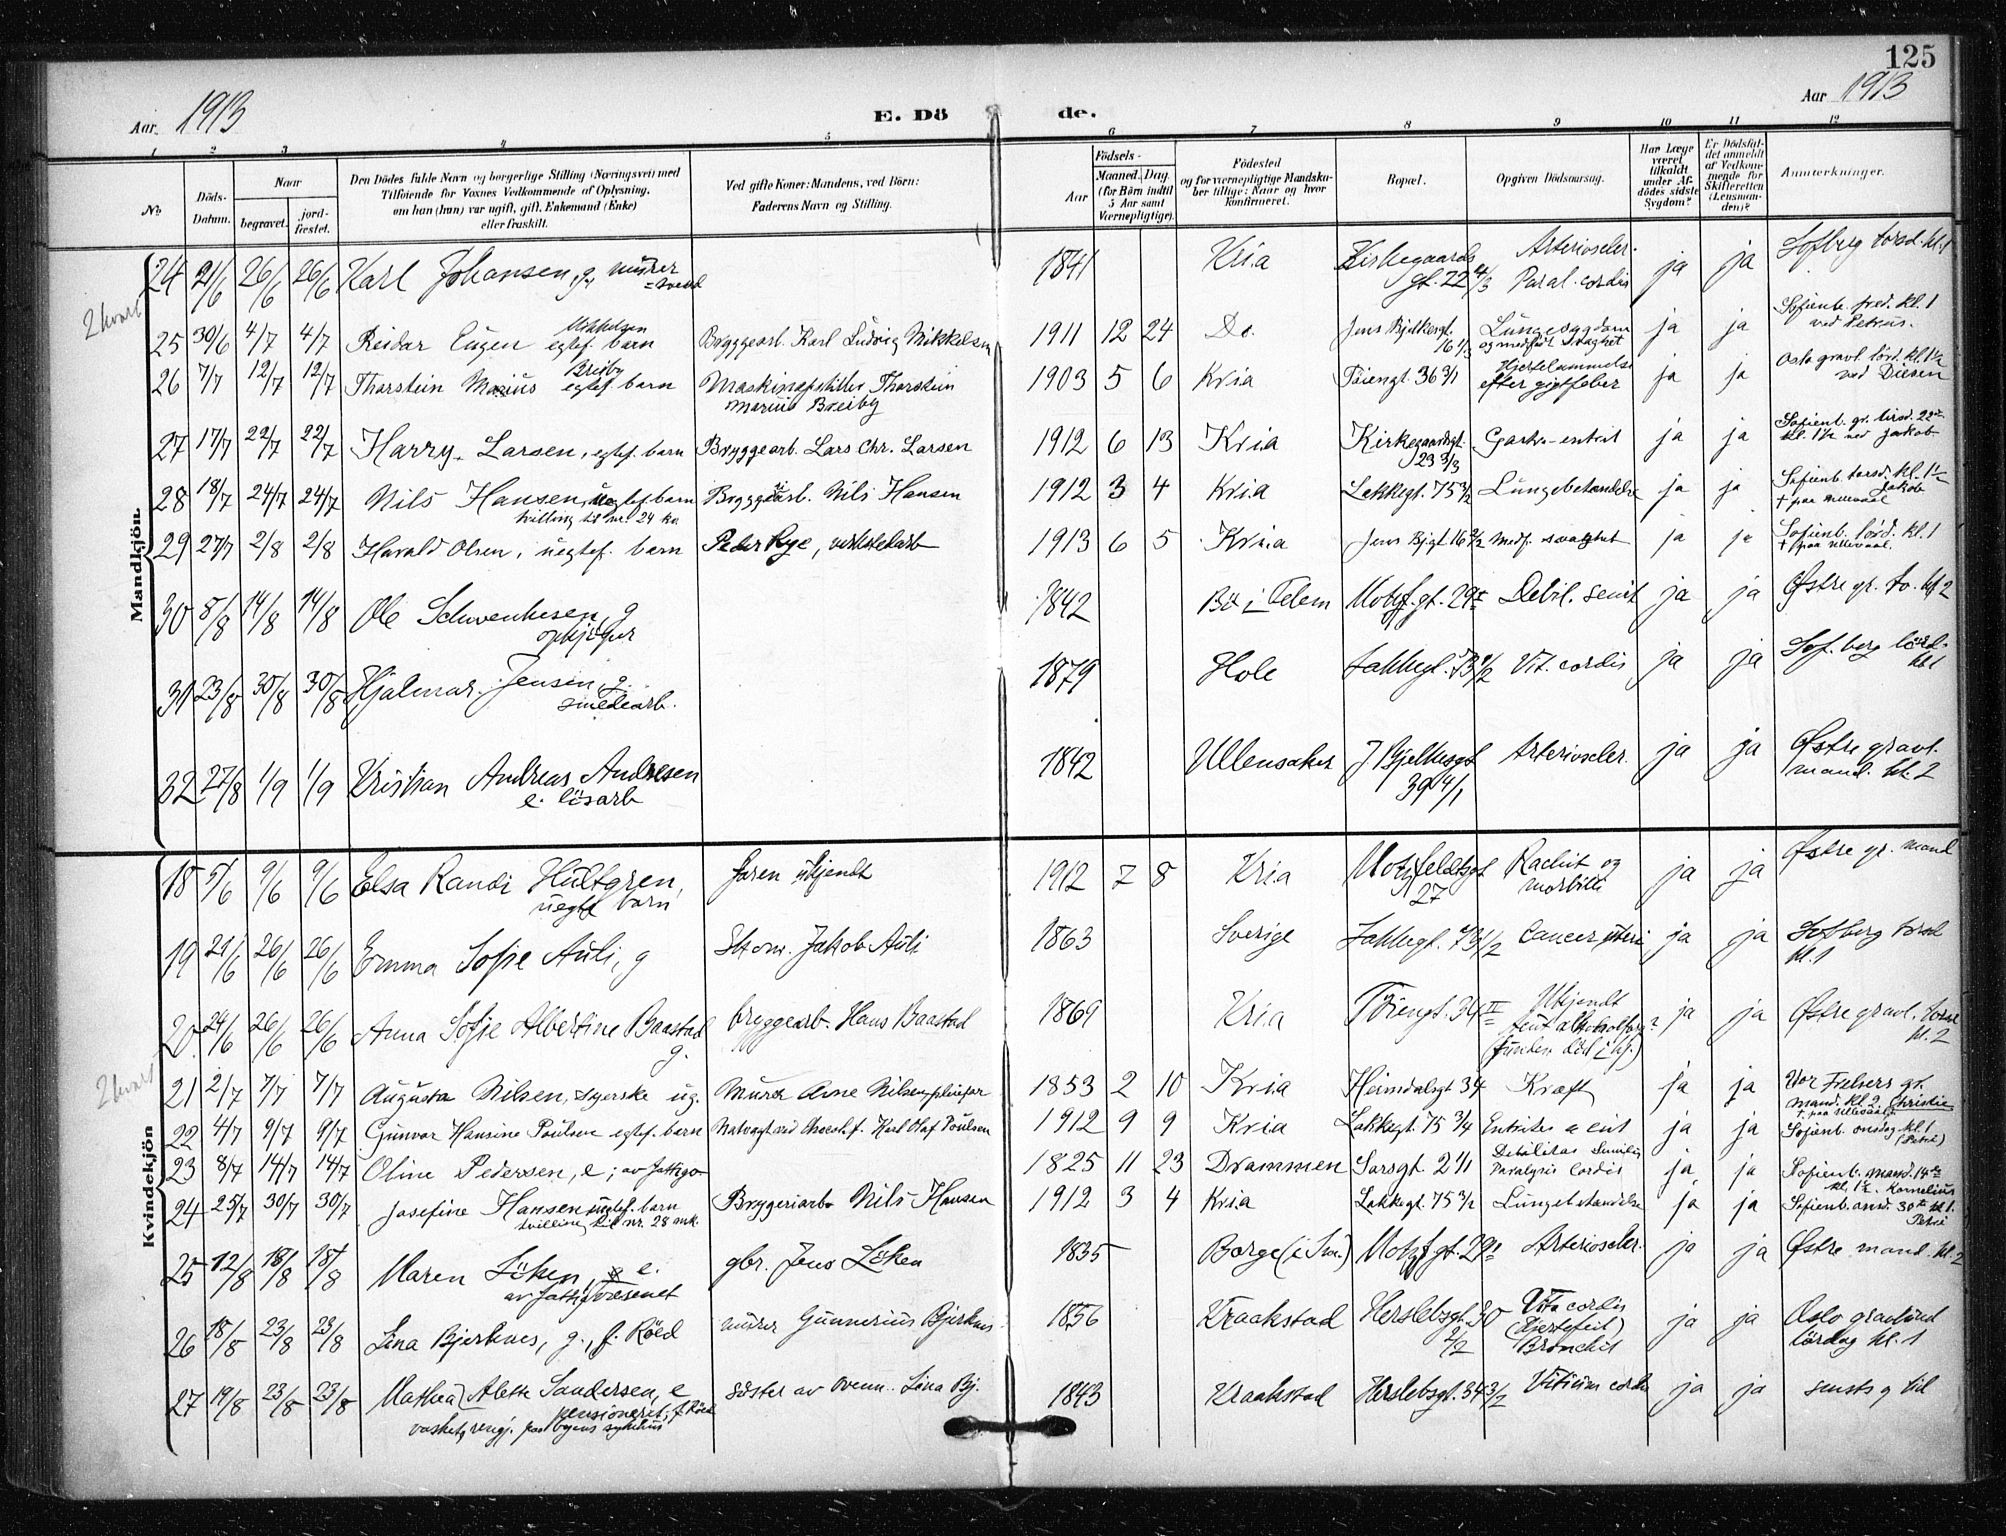 125
Aar 1913
E. Dö de.
Aar 1913
1 2 3 4 5 6 7 8 9 10 11 12
No.
Döds-Datum.
Naar
begravet.
jord-fæstet.
Den Dödes fulde Navn og borgerlige Stilling (Næringsvei) med
Tilföiende for Voxnes Vedkommende af Oplysning,
om han (hun) var ugift, gift, Enkemand (Enke)
eller fraskilt.
Ved gifte Koner: Mandens, ved Börn:
Faderens Navn og Stilling.
Födsels-
Aar
Maaned. Dag.
(for Börn indtil
5 Aar samt
Værnepligtige).
Födested
og for værnepligtige Mandska-
ber tillige: Naar og hvor
konfirmeret.
Bopæl.
Opgiven Dödsaarsag.
Har Læge
været
tilkaldt
under Af-
dödes sidste
Sygdom?
Er Dödsfal-
det anmeldt
af Vedkom-
mende for
Skifteretten
(Lensman-
den)?
Anmerkninger.
Mandkjön.
24 21/6 26/6 26/6 Karl Johansen, g. murer 1841 Kria Kirkegaards gt. 22 4/3 Arterioscler. Paral. cordis ja ja Sofberg torsd. kl. 1
2 kvart
25 30/6 4/7 4/7 Reidar Eugen Mikkelsen egtef. barn Bryggearb. Karl Ludvig Mikkelsen 1911 12 24 Do. Jens Bjelkesgt. 16 1/3 Lungesygdom og medfödt svaghet ja ja Sofienb. fred. kl. 1 ved Petrus.
26 7/7 12/7 12/7 Thorstein Marius Breiby egtef. barn Maskinopstiller Thorstein Marius Breiby 1903 5 6 Kria Töiengt. 36 3/1 Hjertelammelse efter gigtfeber ja ja Oslo gravl. lörd. kl. 1½ ved Diesen
27 17/7 22/7 22/7 Harry Larsen, egtef. barn Bryggearb. Lars Chr. Larsen 1912 6 13 Kria Kirkegaardsgt. 23 3/3 Gastro-enterit ja ja Sofienb. gr. tirsd. 22de kl. 1½ ved Jakob
28 18/7 24/7 24/7 Nils Hansen, uegtef. barn tvilling til nr. 24 kv. Bryggeriarb. Nils Hansen 1912 3 4 Kria Lakkegt. 75 3/2 Lungebetændelse ja ja Sofienb. torsd. kl. 1½ Jakob + paa Ullevaal
29 27/7 2/8 2/8 Harald Olsen, uegtef. barn Peder Rye, verkstedarb 1913 6 5 Kria Jens Bjgt 16 2/2 Medf. svaghet ja ja Sofienb. lörd. kl. 1 + paa Ullevaal.
30 8/8 14/8 14/8 Ole Schwenkesen, g opkjöper 1842 Bö i Telem Motzf. gt. 29 Debil. senil ja ja Østre gr. to. kl 2
31 23/8 30/8 30/8 Hjalmar Jensen, g. smedearb. 1879 Hole Lakkegt. 73 1/2 Vit. cordis ja ja Sof. berg lörd. kl. 1
32 27/8 1/9 1/9 Kristian Andreas Andresen e. lösarb 1842 Ullensaker J Bjelkesgt 39 4/1 Arterioscler. ja ja Østre gravl. mand. kl. 2
Kvindekjön
18 5/6 9/6 9/6 Elsa Randi Hultgren, uegtef barn faren ukjendt 1912 7 8 Kria Motzfeldtsgt 27 Rachit og morbilli ja ja Østre gr. mand
19 21/6 26/6 26/6 Emma Sofie Auli, g Skom. Jakob Auli 1863 Sverige Lakkegt. 73 1/2 Cancer uteri ja ja Sofberg torsd kl. 1
20 24/6 26/6 26/6 Anna Sofie Albertine Baastad g. bryggearb. Hans Baastad 1869 Kria Töiengt. 34 II Ukjendt (funden död i hj.) ja ja Østre gravl. torsd kl. 2
2 kvart
21 2/7 7/7 7/7 Augusta Nilsen, syerske ug. Murer Arne Nilsen 1853 2 10 Kria Heimdalsgt 34 Kræft ja ja Vor Frelsers gr. mand. kl. 2. Christie + paa Ullevaal
22 4/7 9/7 9/7 Gunvor Hansine Poulsen egtef. barn Natvagt ved Karl Olaf Poulsen 1912 9 9 Kria Lakkegt. 75 3/4 Entrites ja ja Sofienb. onsdag kl. 1 (Petri)
23 8/7 14/7 14/7 Oline Pedersen, e; av fattigv. 1825 11 23 Drammen Sarsgt. 2 1/1 Debilitas Senilis Paralysis Cordis ja ja Sofienb. mand. 14de kl. 1½. Kornelius
24 25/7 30/7 30/7 Josefine Hansen uegtef. barn tvilling til nr. 28 mk. Bryggeriarb Nils Hansen 1912 3 4 Kria Lakkegt. 75 3/2 Lungebetændelse ja ja Sofienb. onsd. 30te kl. 1. Petri
25 12/8 18/8 18/8 Maren Löken, e. av fattigvæsenet gbr. Jens Löken 1835 Borge (i Sm.) Motzf gt. 29 Arterioscler. ja ja Østre mand. kl. 2
26 18/8 23/8 23/8 Lina Bjerknes, g., f. Röed murer Gunnerius Bjerknes 1856 Kraakstad Herslebsgt. 30 2/2 Vita cordis (Hjertefeil) Bronchit ja ja Oslo gravlund lördag kl. 1
27 19/8 23/8 23/8 Mathea Alette Sandersen, e pensioneret, f Röed vasket, rengj. paa byens sykehus söster av ovenn. Lina Bj. 1843 Kraakstad Herslebsgt. 34 3/2 Vitium cordis ja ja